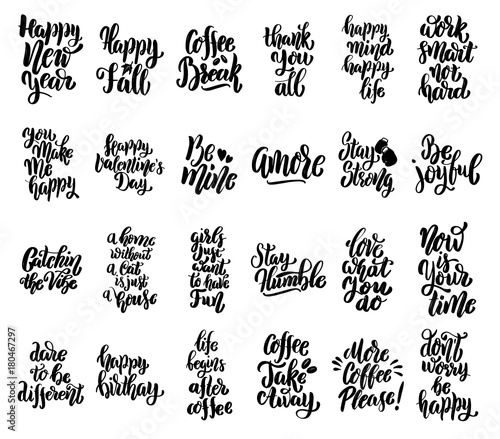 Happy
New
Year
Happy
Fall
Coffee
Break
thank
you
all
happy
mind
happy
life
work
smart
not
hard
you
make
me
happy
Happy
Valentine's
Day
Be
mine
amore
Stay
Strong
Be
joyful
Catchin
the Vibe
a home
without
a Cat
is just
a house
girls
just
want
to have
Fun
Stay
Humble
love
what
you
do
Now
is
Your
time
dare
to be
different
happy
birthay
life
begins
after
coffee
Coffee
Take
Away
More
Coffee
Please!
don't
worry
be
happy
Adobe Stock | #180467297